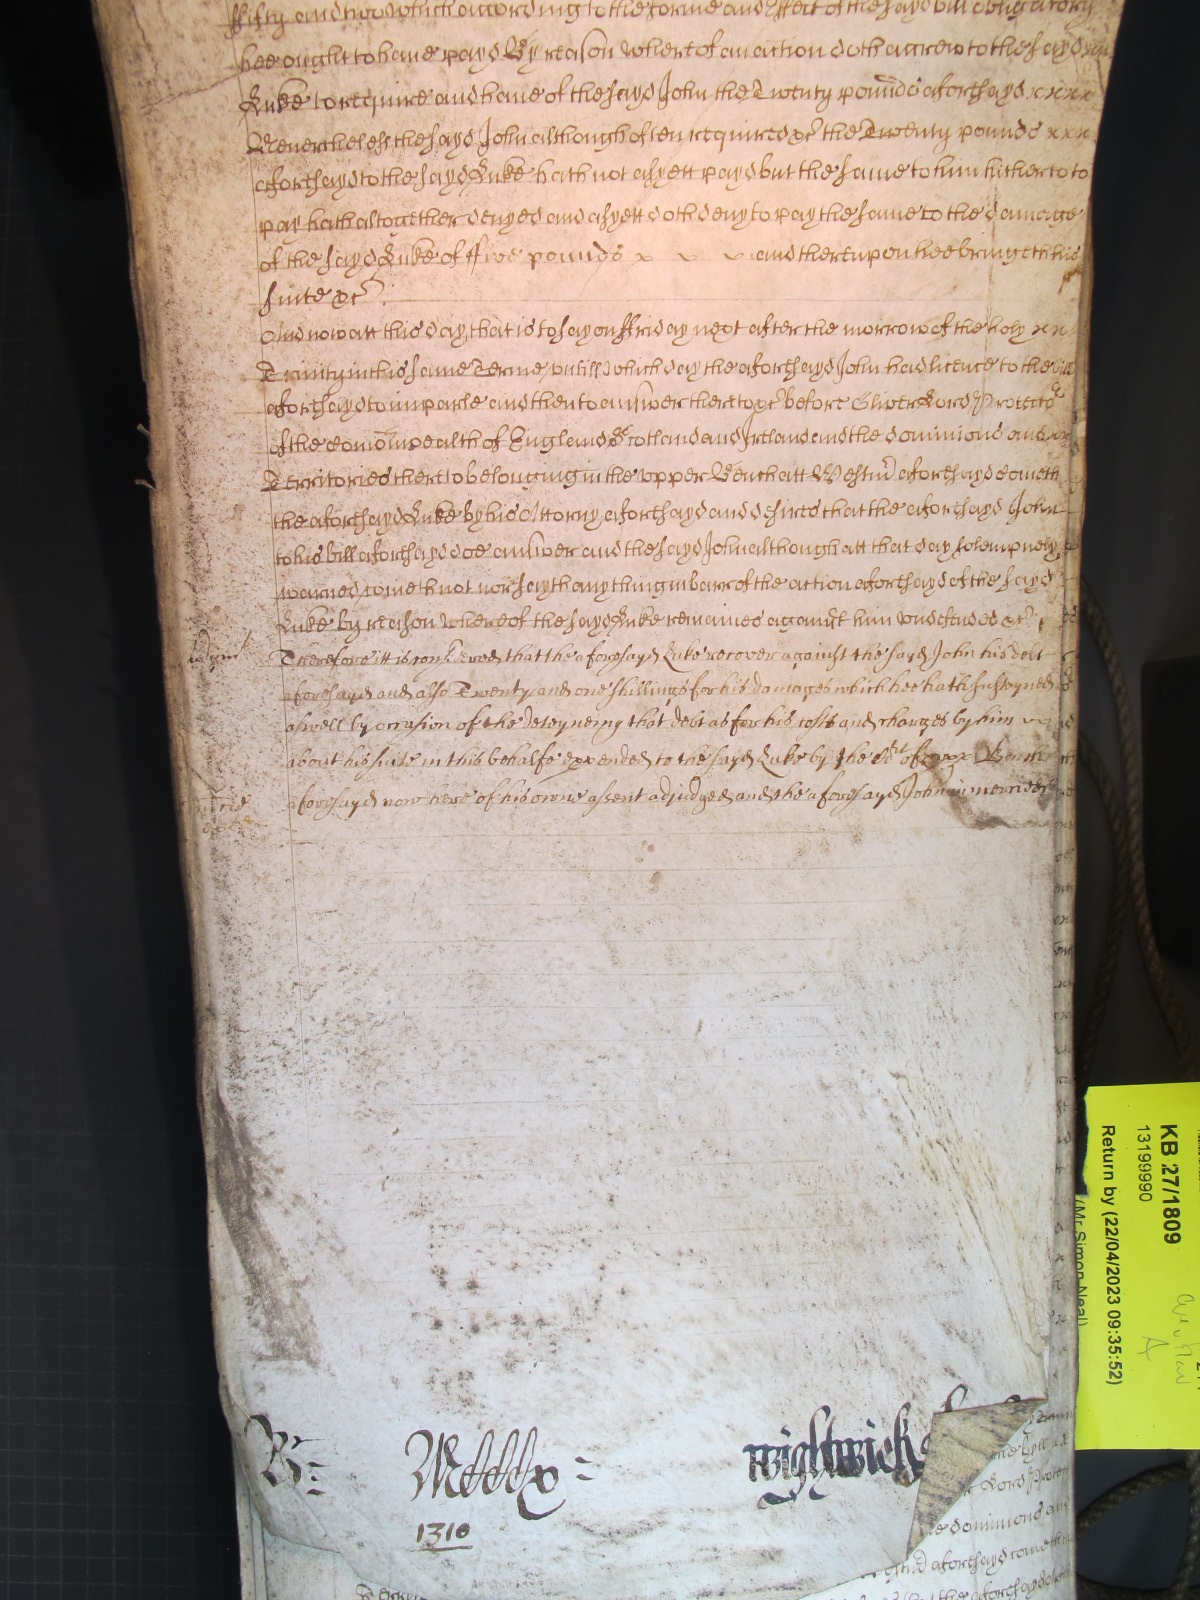 ffifty and two which according to the forme and effect of the sayd bill obligatory
hee ought to have payd By reason whereof an action doth accrew to the sayd
Luke to require and have of the sayd John the Twenty pounds aforesayd xxxx
Neverthelesse the sayd John although often required &c the Twenty pounds xxx
aforesayd to the sayd Luke hath not as yett payd but the same to him hitherto to
pay hath altogether denyed and as yett doth deny to pay the same to the damage
of the sayd Luke of ffive pounds x x x and thereupon hee bringeth his
suite &c
And now att this day that is to say on ffriday next after the morrow of the holy xx
Trinity in this same Terme untill which day the aforesayd John had licence to the bill
aforesayd to imparle and then to answer thereto &c before Oliver Lord Protector
of the comonwealth of England Scotland and Ireland and the dominions and xx
Territories thereto belonging in the upper Bench att Westmr aforesayd cometh
the aforesayd Luke by his Attorny aforesayd and desires that the aforesayd John
to his bill aforesayd doe answer and the sayd John although att that day solempnely
warned cometh not nor sayth any thing in barr of the action aforesayd of the sayd
Luke by reason whereof the sayd Luke remaines against him undefended &c
Judgmt
Therefore itt is considered that the aforesayd Luke recover against the sayd John his debt
aforesayd and also Twenty and one shillings for his damages which hee hath susteyned
aswell by occasion of the deteyneing that debt as for his costs and charges by him
about his suite in this behalfe expended to the sayd Luke by the Cort of upper Bench
aforesayd now here of his owne assent adjudged and the aforesayd John in mercie &c
KB 27/1809
13199990
Return by (22/04/2023 09:35:52)
(Mr Simon Neal)
Mccccx
wightwick
1310